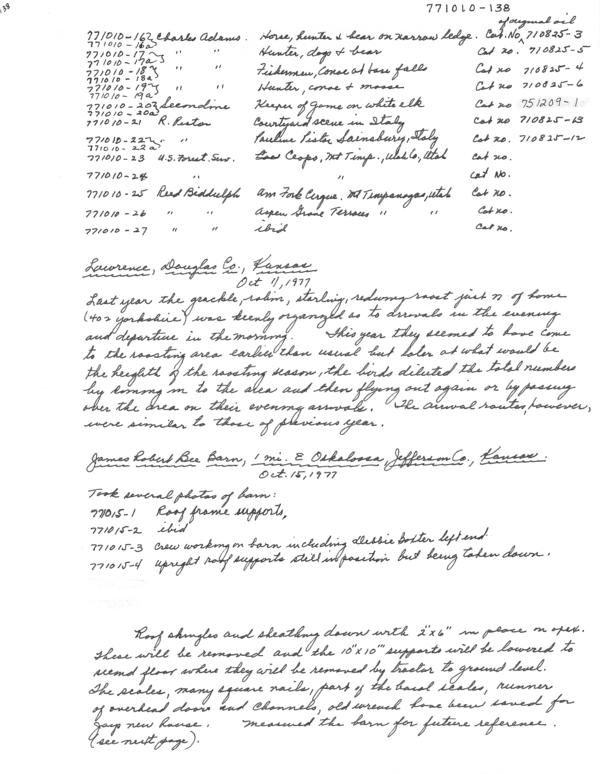 771010-138
of original oil
771010-16 Charles Adams. Horse, hunter & bear on narrow ledge. Cat. No. 710825-3
771010-16a
771010-17 " " Hunter, dogs & bear Cat no. 710825-5
771010-17a
771010-18 " " Fishermen, Canoe at base falls Cat no 710825-4
771010-18a
771010-19 " " Hunter, canoe & moose Cat no 710825-6
771010-19a
771010-20 Secondine Keeper of Game on white elk Cat no 751209-10
771010-20a
771010-21 R. Pistor Courtyard scene in Italy Cat no. 710825-13
771010-22 " " Pauline Pistor Sainsbury, Italy Cat no. 710825-12
771010-22a
771010-23 U.S. Forest. Serv. Mt Timp., Utah Co, Utah Cat no.
771010-24 " " Cat No.
771010-25 Reed Biddulph Am Fork Cirque, Mt Timpanogas, Utah Cat no.
771010-26 " " Aspen Grove Terraces " " Cat no.
771010-27 " " ibid Cat no.
Lawrence, Douglas Co., Kansas
Oct 11, 1977
Last year the grackle, robin, starling, redwing roost just N of home
(402 yorkshire) was keenly organized as to arrivals in the evening
and departure in the morning. This year they seemed to have come
to the roosting area earlier than usual but later at what would be
the heighth of the roosting season, the birds diluted the total numbers
by coming in to the area and then flying out again or by passing
over the area on their evening arrivals. The arrival routes, however,
were similar to those of previous year.
James Robert Bee Barn, 1 mi. E Oskaloosa, Jefferson Co., Kansas.
Oct. 15, 1977
Took several photos of barn:
771015-1 Roof frame supports,
771015-2 ibid
771015-3 Crew working on barn including Debbie Boster left end
771015-4 upright roof supports still in position but being taken down.
Roof shingles and sheathing down with 2"x6" in place on apex.
These will be removed and the 10"x10"" supports will be lowered to
second floor where they will be removed by tractor to ground level.
The scales, many square nails, part of the basal scales, runner
of overhead doors and channels, old wrench have been saved for
Jays new house. Measured the barn for future reference.
(see next page).